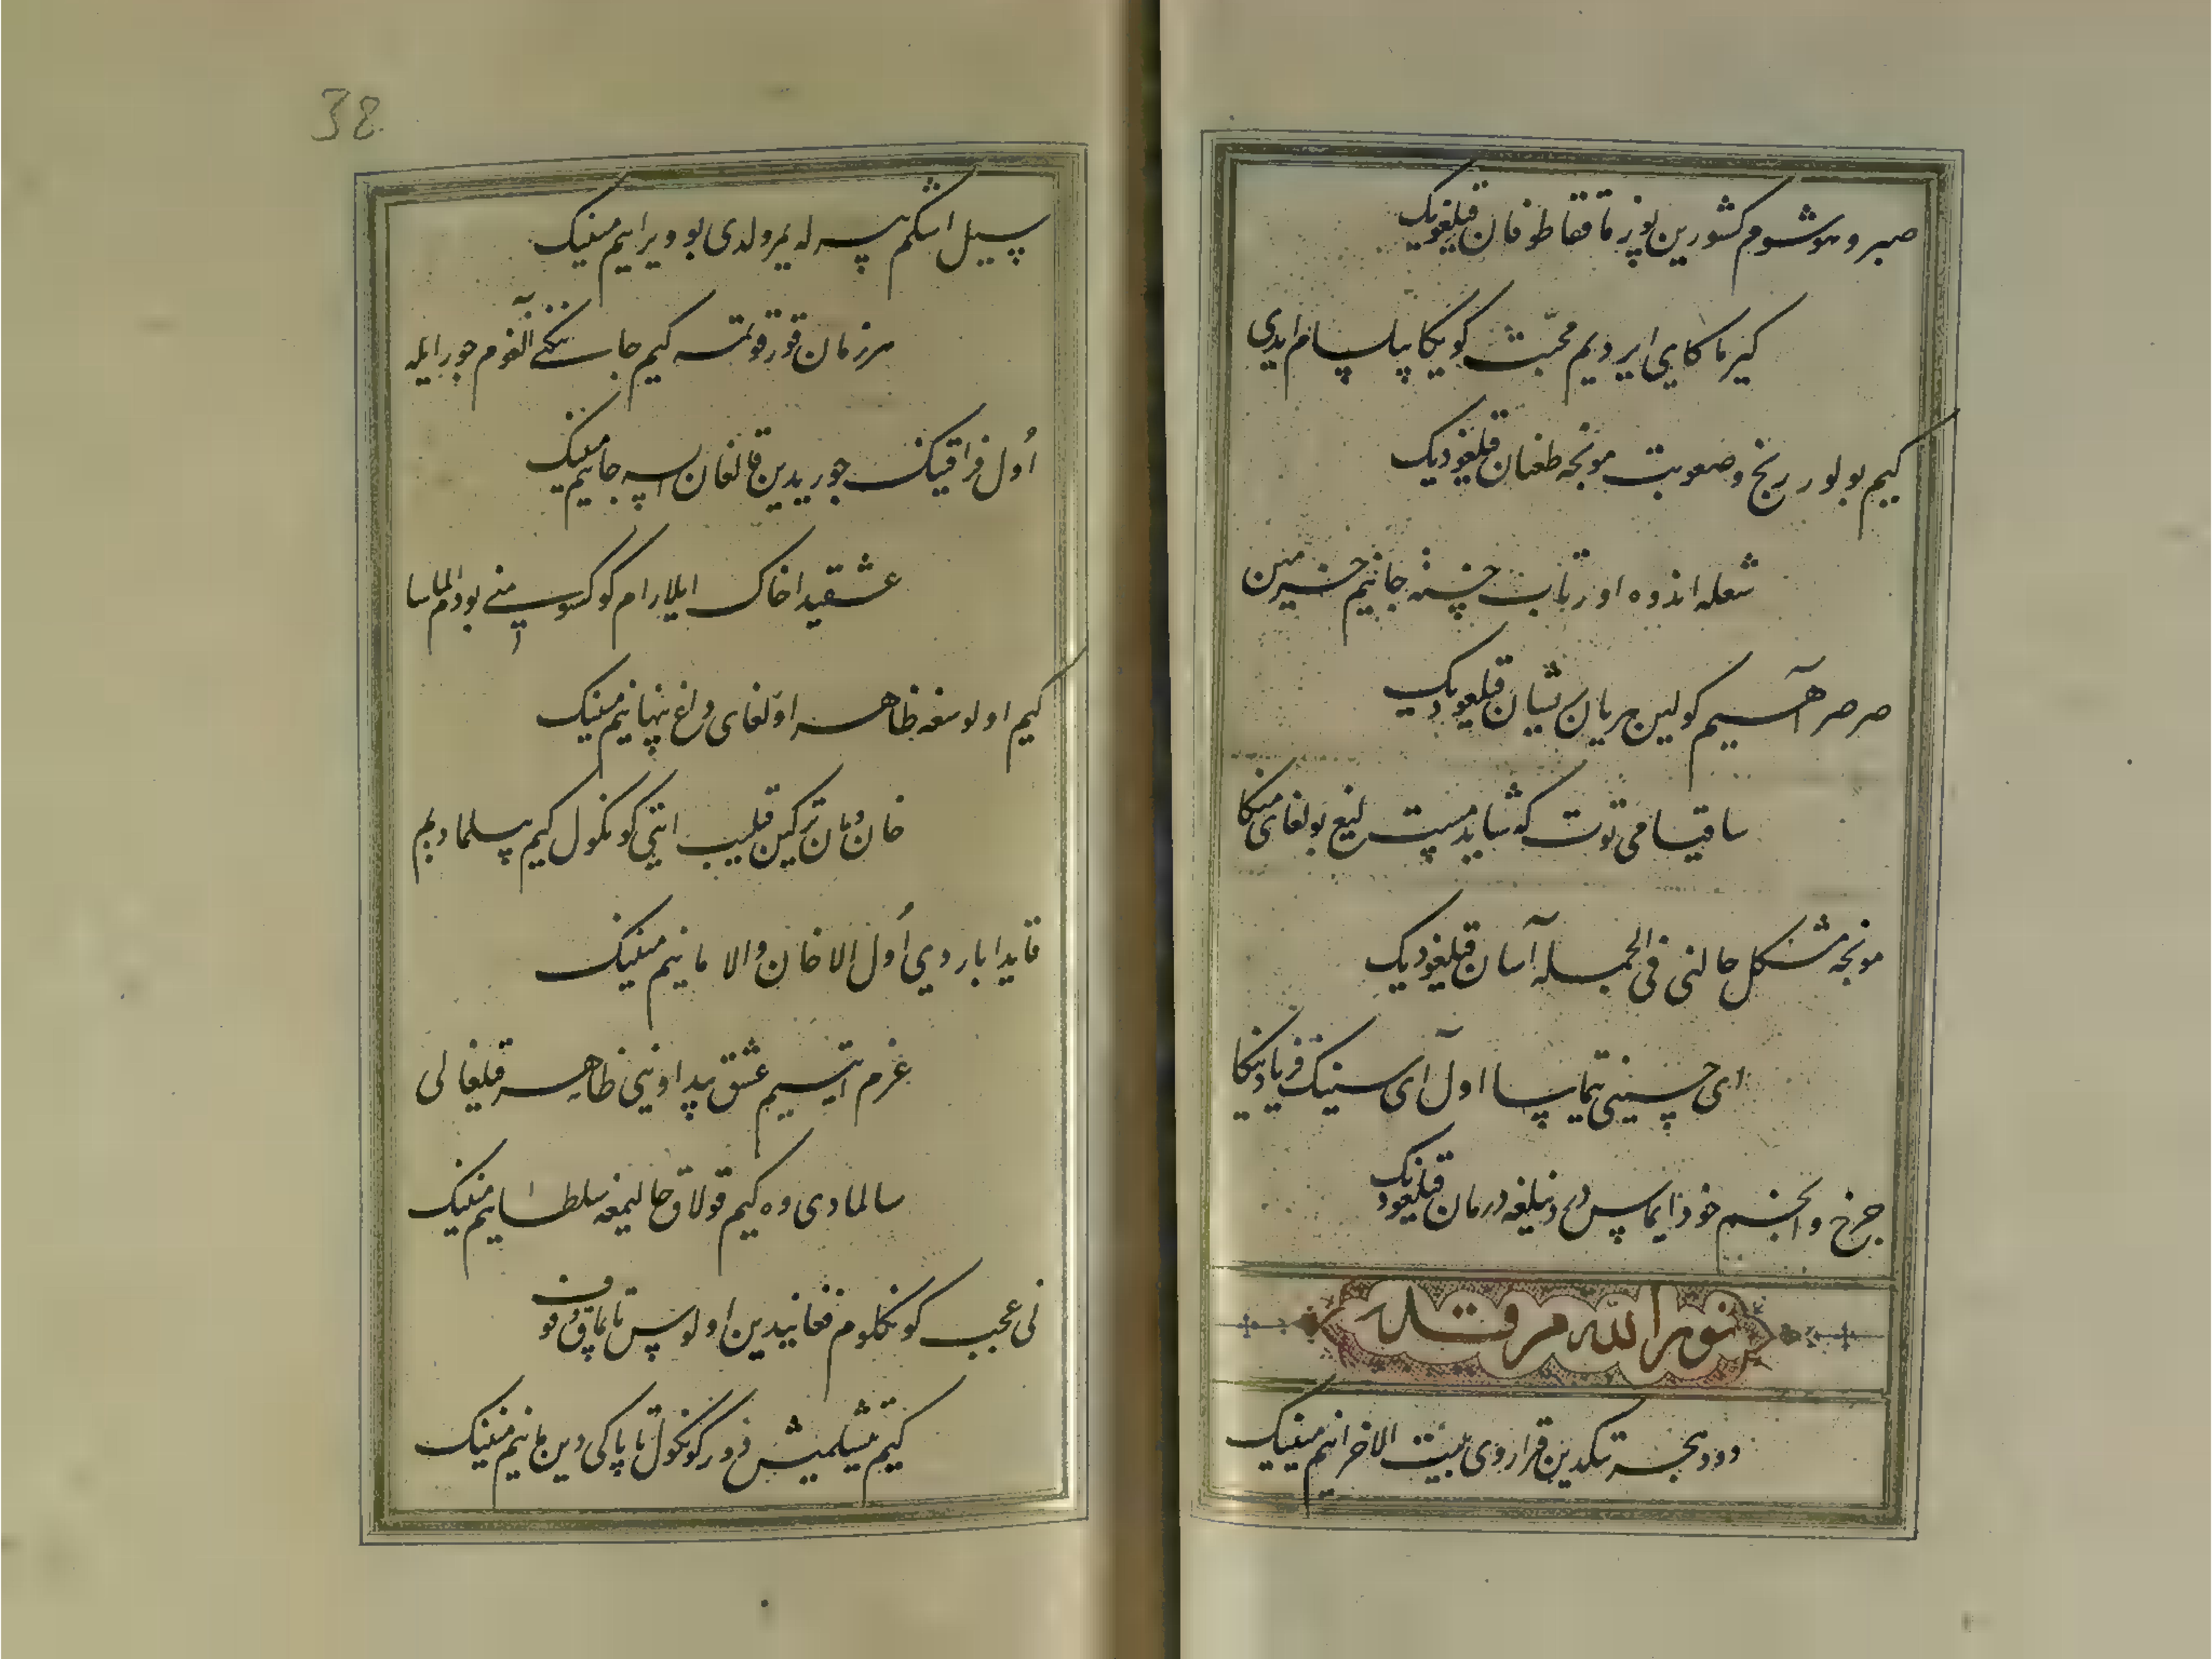 صبر و هوشوم کشورین بوزماققا طوفان قیلغودیک
کیرماکای ایردیم محبت کوییکا بیلسام ایدی
کیم بولور رنج و صعوبت مونجه طغیان قیلغودیک
شعله اندوه اورتاب خسته جانیم خرمنین
صرصر آهیم کولین هر یان پریشان قیلغودیک
ساقیا می توت که شاید مست لیغ بولغای منکا
مونجه مشکل حالنی فی الجمله آسان قیلغودیک
ای حسینی تیماسا اول آی سنینک فریادینکا
چرخ و انجم خود ایماس دردینکغه درمان قیلغودیک
نور الله مرقده
دود هجر تیکدین قراردی بیت الاحزانیم مینینک
38
سیل اشکیم بیرله یمرولدی بو ویرانیم مینینک
هر زمان قورقوتمه کیم جانینکنی آلغوم جور ایله
اول فراقینک جوریدین قالغان ایسه جانیم مینینک
عشقیدا خاک ایلارام کوکسومنی بودم الماسا
کیم اولوسغه ظاهر اولغای داغ پنهانیم مینینک
خان و مان ترکین قیلیب ایتتی کونکول کیم بیلمادیم
قایدا باردی اول الاخان والا مانیم مینینک
عزم ایتیم عشقیدا اوزنی ظاهر قیلغالی
سالمادی وه کیم قولاق حالیمغه سلطانیم مینینک
نی عجب کونکلوم فغانیدین اولوس تابماق وقوف
کیتیم تیشلمیش دور کونکول تا پاکی دین مانیم مینینک